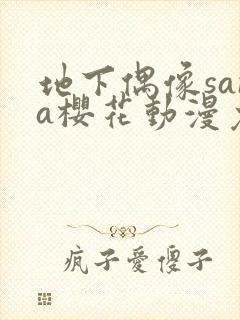 地下偶像sa
a櫻花動漫
疯子愛傻子